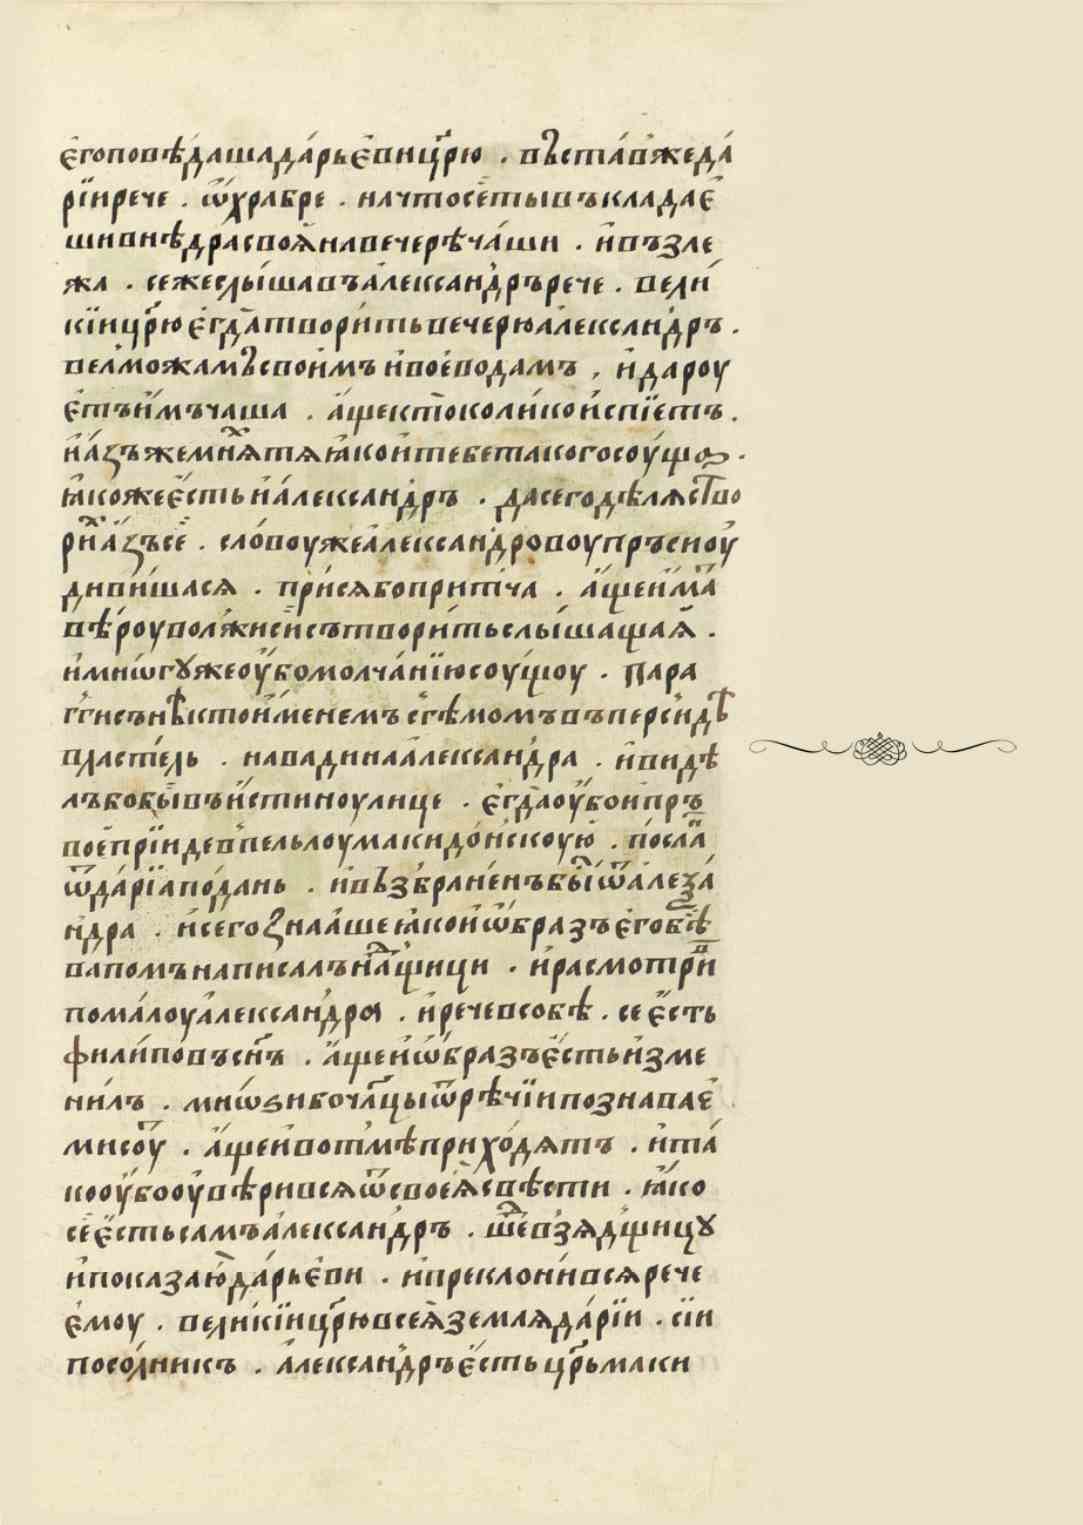 єгоповѣдашадарьєвицр҃ю . въставжеда
рїирече . ѽхрабре . начтосетывъкладає
шивнѣдрасвоянавечерѣчаши . ивъзле
жа . сежеслышавъалександрърече . вели
кїицр҃юєгдатворитьвечерюалександръ .
велможамъсвоимъивоеводамъ , идароу
єтъимъчаша . ащектоколикоиспїетъ .
иазъжемняхтяꙗкоитебетакогосоуща .
ꙗкожеєстьиалександръ . дасегодѣляство
рихазъсе . словоужеалександровоупръсиоу
дивишася . присябопритча . ащеима
вѣроуволжнсиисътворитьслышащая .
имнѡгꙋжеоубомолчанїюсоущоу . пара
ггисънѣктоименемъєгѣмомъвъперсидѣ
властель . навадинаалександра . ивидѣ
лъбобывъистиноулице . єгдаоубоипръ
воепрїидевпельлоумакидонскоую . посла
ѿдарїаподань . ивъзбрафененъбыѿалеѯа
ндра . исегознаашеꙗкоиѡбразъєгобѣ
вапомънаписалънадщици . ирасмотрив
помалоуалександра . иречевсобѣ . сеєсть
филиповъсн҃ъ . ащеиѡбразъєстьизме
нилъ . мнѡѕибочл҃цыѿрѣчїипознавае
мисоут . ащеивотмѣприходятъ . ита
кооубооувѣривсяѿсвоеясвѣсти . ꙗко
сеєстьсамъалександръ . шедвзядщицꙋ
ипоказаюдарьєви . ипреклонивсярече
ємоу . великїицр҃ювсеяземлядарїи . сїи
посолникъ . александръєстьцр҃ьмаки